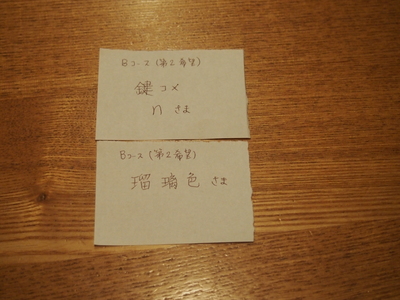 Bコース(第2希望)
鍵コメ
nさま
Bコース(第2希望)
瑠璃色さま